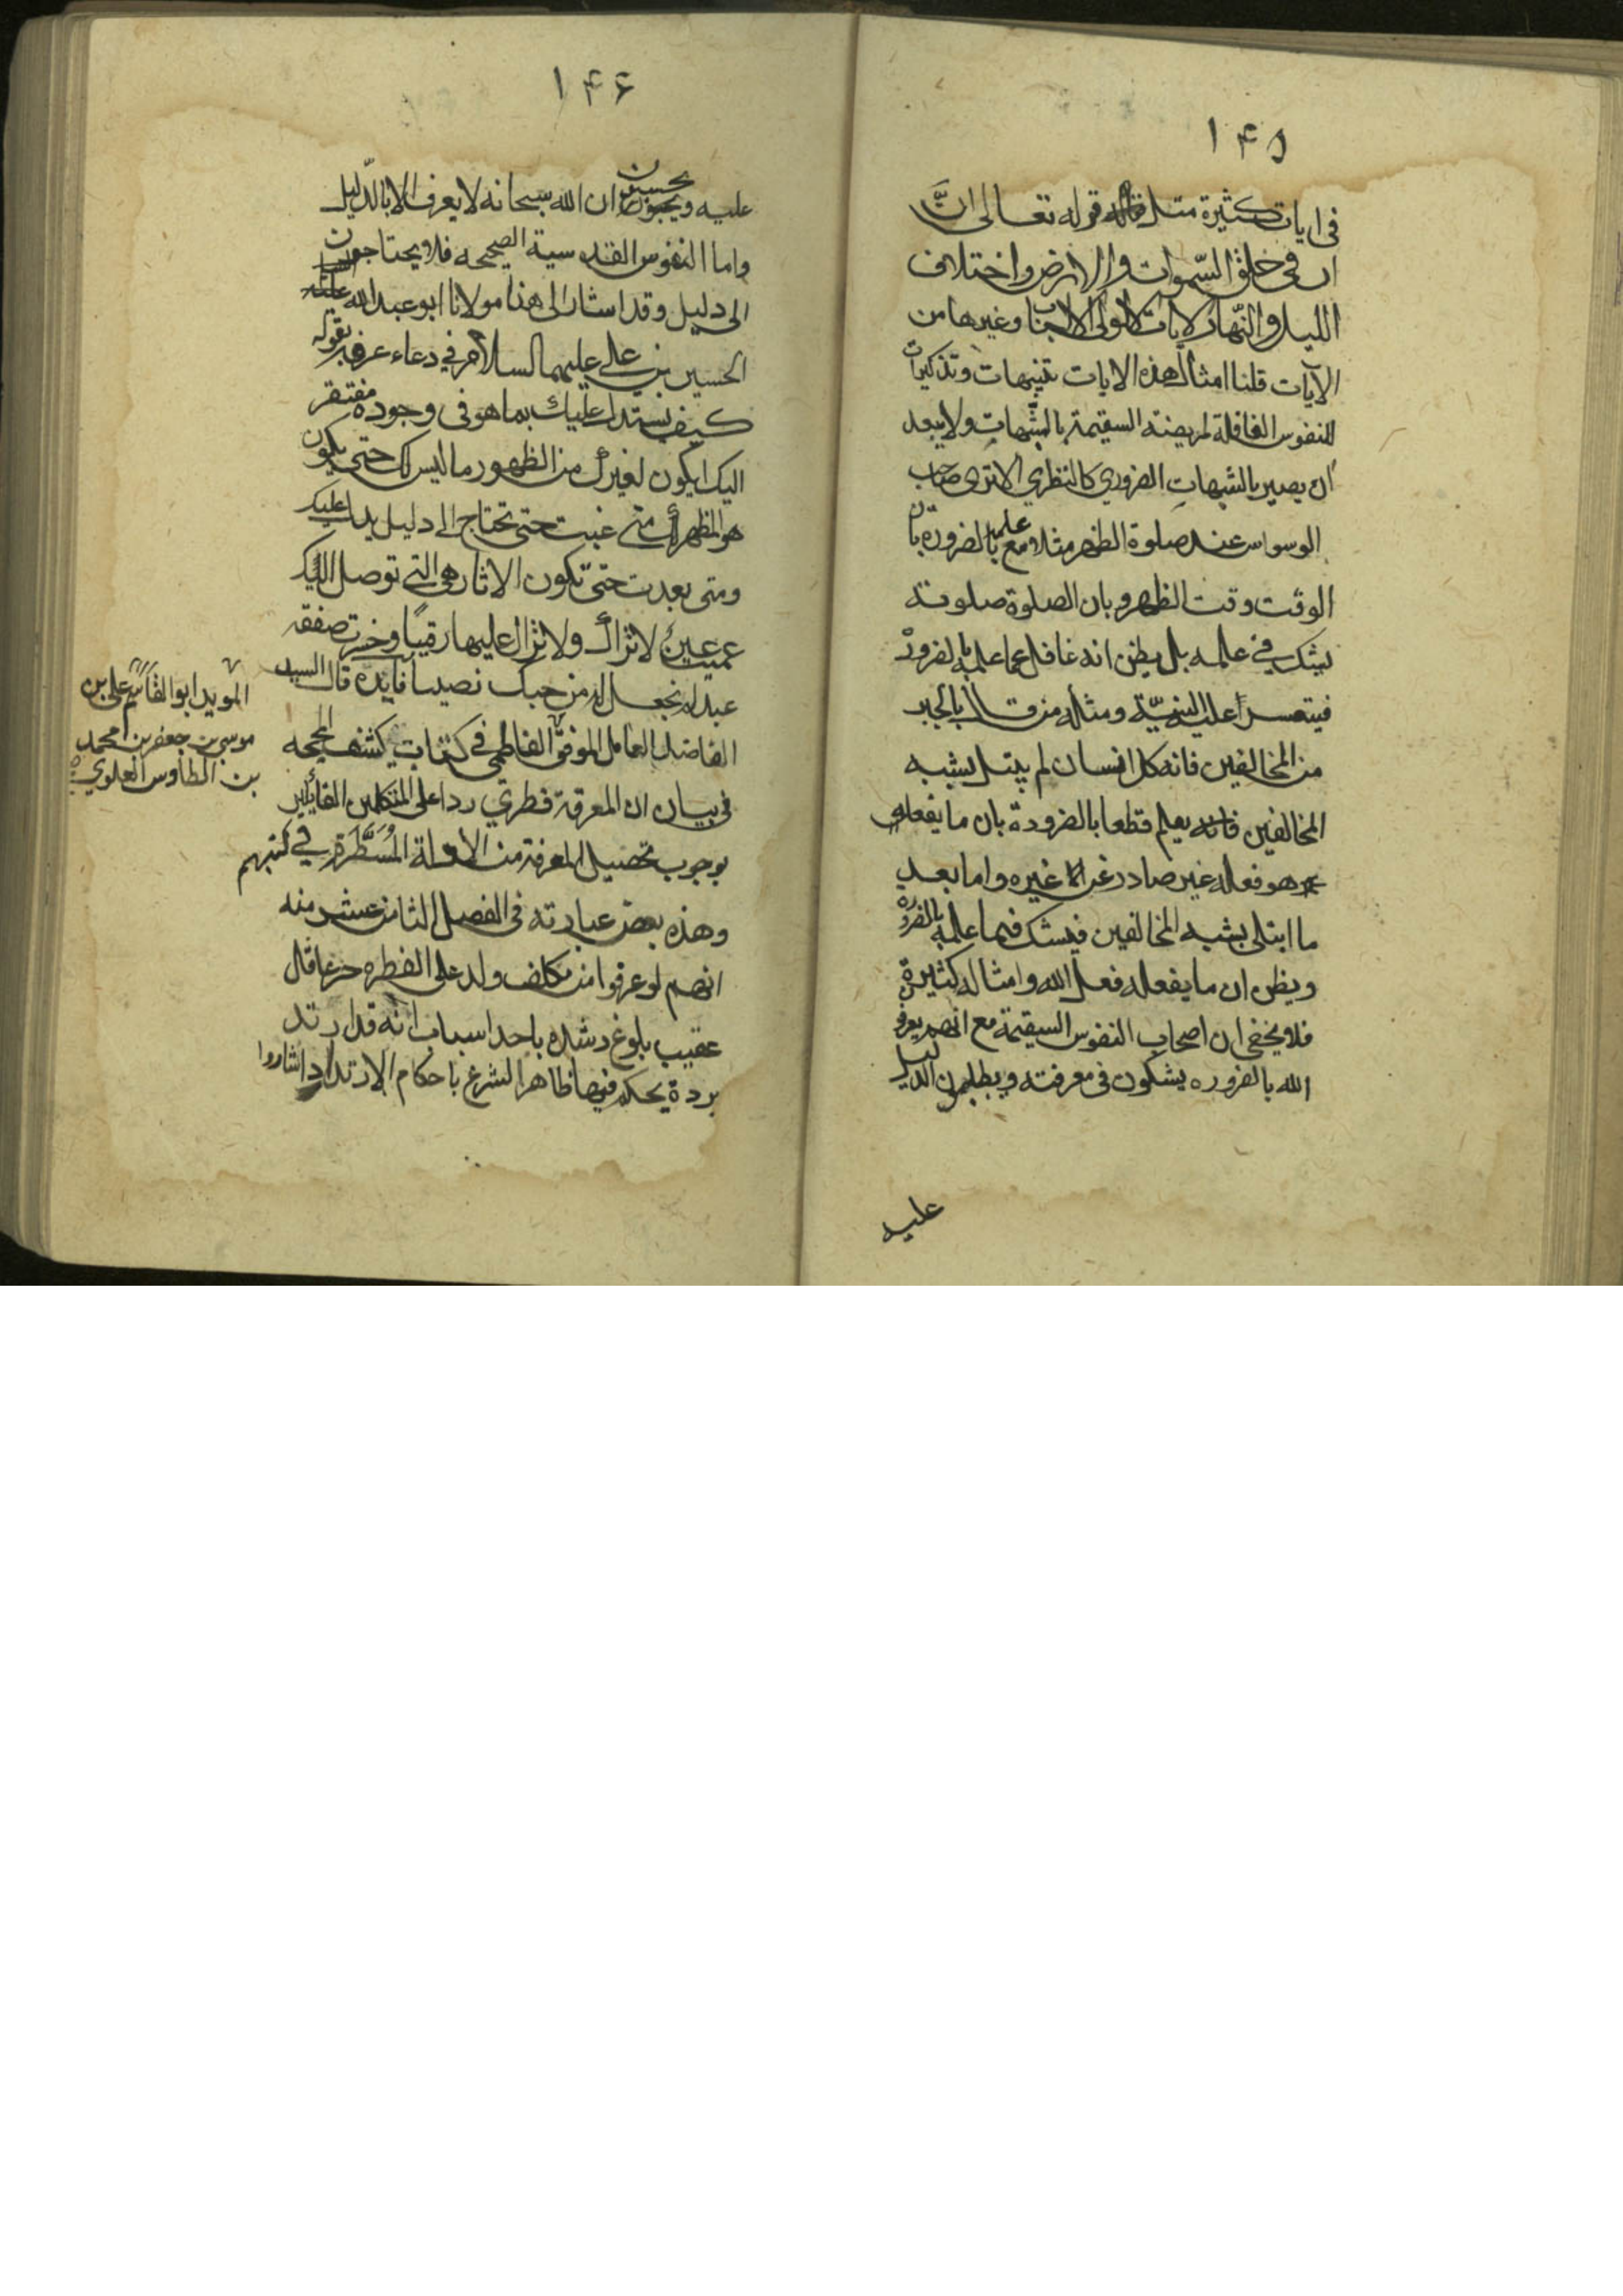 ١۴۵
فى ايات كثيرة مثل قوله تعالى انَّ
ان فى خلق السّموات والارض واختلاف
الليل والنّهار لايات لاولى الالباب وغيرها من
الآيات قلنا امثال هذه الايات تنبيهات وتذكيرات
للنفوس الغافلة المريضة السقيمة بالشّبهات ولا يبعد
ان يصير بالشبهات الضرورى كالنظرى الا ترى صاحب
الوسواس عند صلوة الظهر مثلا مع علمه بالضرورة بان
الوقت وقت الظهر وبان الصلوة صلوته
يشك فى علمه بل يظن انه غافل عما علمه بالضرورة
فيتعسر عليه النيّة ومثله من قال بالجبر
من المخالفين فانه كل انسان لم يبتل بشبه
المخالفين فانه يعلم قطعا بالضرورة بان ما يفعله
هو فعله غير صادر عن غيره واما بعد
ما ابتلى بشبه المخالفين فيشك فيما علمه بالضرورة
ويظن ان ما يفعله فعل الله وامثاله كثيرة
فلا يخفى ان اصحاب النفوس السقيمة مع انهم يعرفون
الله بالضروره يشكون فى معرفته ويطلبون الدليل
عليه
١۴۶
عليه ويحسبون ان الله سبحانه لا يعرف الا بالدّليل
واما النفوس القدسية الصحيحه فلا يحتاجون
الى دليل وقد اشار الى هذا مولانا ابو عبد الله
الحسين بن على عليهما السلام فى دعاء عرفه بقوله
كيف يستدل عليك بما هو فى وجوده مفتقر
اليك ايكون لغيرك من الظهور ما ليس لك حتى يكون
هو المظهر لك متى غبت حتى تحتاج الى دليل يدل عليك
ومتى بعدت حتى تكون الاثار هى التى توصل اليك
عميت عين لا تراك ولا تزال عليها رقيبًا وخسرت صفقه
عبد لم تجعل له من حبك نصيبا فايده قال السيد
الفاضل العامل الموفق الفاطمى فى كتاب كشف المحجه
فى بيان ان المعرفة فطرى ردا على المتكلمين القائلين
بوجوب تحصيل المعرفة من الادلة المُسَطَّرة فى كتبهم
وهذه بعض عبارته فى الفصل الثامن عشر منه
انهم لو عرفوا من مكلف ولد على الفطره حر عاقل
عقيب بلوغ رشده باحد اسباب انه قد ارتد
بردة يحكم فيها ظاهر الشرع باحكام الارتداد واشاروا
المويد ابو القاسم على بن
موسى بن جعفر بن محمد
بن الطاوس العلوى